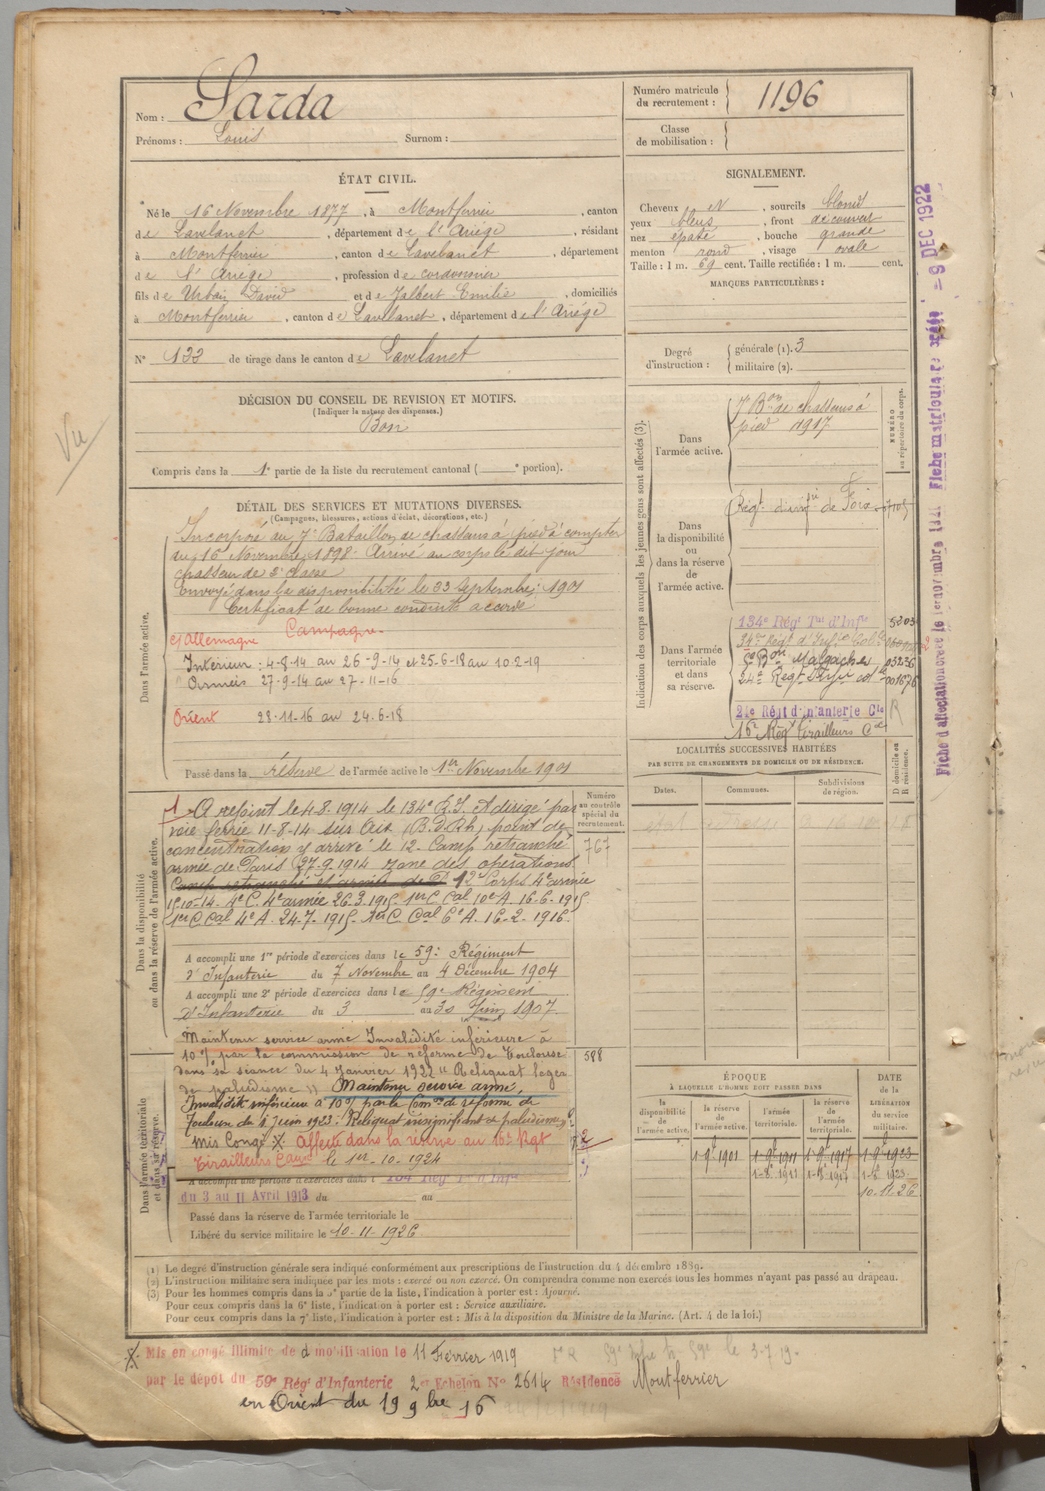 Nom : Sarda
Prénoms : Louis Surnom :
Numéro matricule du recrutement : 1196
Classe de mobilisation :
ÉTAT CIVIL.
Né le 16 Novembre 1877, à Montferrier, canton
de Lavelanet, département de l'Ariège, résidant
à Montferrier, canton de Lavelanet, département
de l'Ariège, profession de cordonnier
fils de Urbain David et de Jalbert Emilie, domiciliés
à Montferrier, canton de Lavelanet, département de l'Ariège
N° 133 de tirage dans le canton de Lavelanet
SIGNALEMENT.
Cheveux N, sourcils blonds
yeux bleus, front découvert
nez épaté, bouche grande
menton rond, visage ovale
Taille : 1 m. 69 cent. Taille rectifiée : 1 m. cent.
MARQUES PARTICULIÈRES :
Degré d'instruction : générale (1). 3
militaire (2).
DÉCISION DU CONSEIL DE REVISION ET MOTIFS.
(Indiquer la nature des dispenses.)
Bon
Compris dans la 1e partie de la liste du recrutement cantonal ( e portion).
DÉTAIL DES SERVICES ET MUTATIONS DIVERSES.
(Campagnes, blessures, actions d'éclat, décorations, etc.)
Dans l'armée active.
Incorporé au 7e Bataillon de chasseurs à pied à compter
du 16 Novembre 1898. Arrivé au corps le dit jour
chasseur de 2e classe
Envoyé dans la disponibilité le 23 Septembre 1901
Certificat de bonne conduite accordé
Campagne
c/ Allemagne
Intérieur : 4-8-14 au 26-9-14 et 25-6-18 au 10-2-19
Armées 27-9-14 au 27-11-16
Orient 28-11-16 au 24-6-18
Passé dans la réserve de l'armée active le 1er Novembre 1901
Dans la disponibilité ou dans la réserve de l'armée active.
A rejoint le 4-8-1914 le 134e R.I. et dirigé par
voie ferrée 11-8-14 sur Aix (B.d.Rh) point de
concentration y arrivé le 12. Camp retranché
armée de Paris 27-9-1914 zone des opérations
Camp retranché et armée de P 12e Corps 4e armée
15-10-14. 4e C. 4e armée 26.3.1915 1er C Cal 10e A. 16-6-1915
1er C Cal 4e A. 24-7-1915. 1er C. Cal 6e A. 16-2-1916.
A accompli une 1re période d'exercices dans le 59e Régiment
d'Infanterie du 7 Novembre au 4 Décembre 1904
A accompli une 2e période d'exercices dans le 59e Régiment
d'Infanterie du 3 au 30 Juin 1907
Numéro au contrôle spécial du recrutement.
767
588
Dans l'armée territoriale et dans sa réserve.
Maintenu service armé Invalidité inférieure à
10% par la commission de réforme de Toulouse
dans sa séance du 4 Janvier 1922 "Reliquat léger
de paludisme" Maintenu service armé,
Invalidité inférieure à 10% par la Comon de réforme de
Toulouse du 1 Juin 1923. Reliquat insignifiant de paludisme
Mis Congé X Affecté dans la réserve au 16e Rgt
Tirailleurs Caux le 1er-10-1924
A accompli une période d'exercices dans l 134 Rég T d'Infie
du 3 au 11 Avril 1913 du au
Passé dans la réserve de l'armée territoriale le
Libéré du service militaire le 10-11-1926
Indication des corps auxquels les jeunes gens sont affectés (3).
NUMÉRO au répertoire du corps.
Dans l'armée active.
7e Bon de chasseurs à
pied 1917
Dans la disponibilité ou dans la réserve de l'armée active.
Régt d'infie de Foix
Dans l'armée territoriale et dans sa réserve.
134e Régt Tal d'Infie 5203
34e Régt d'Infie Cole
Bon Malgaches 03236
24e Régt Infie col 001676
21e Régt d'infanterie Cle R
16e Régt tirailleurs Caux
LOCALITÉS SUCCESSIVES HABITÉES
PAR SUITE DE CHANGEMENTS DE DOMICILE OU DE RÉSIDENCE.
Dates. Communes. Subdivisions de région. D domicile ou R résidence.
ÉPOQUE
À LAQUELLE L'HOMME DOIT PASSER DANS
la disponibilité de l'armée active. la réserve de l'armée active. l'armée territoriale. la réserve de l'armée territoriale.
DATE de la LIBÉRATION du service militaire.
1-9bre 1901 1-9bre 1911 1-9bre 1917 1-9bre 1923
1-8e 1911 1-8e 1917 1-8e 1923
10.11.26
(1) Le degré d'instruction générale sera indiqué conformément aux prescriptions de l'instruction du 4 décembre 1889.
(2) L'instruction militaire sera indiquée par les mots : exercé ou non exercé. On comprendra comme non exercés tous les hommes n'ayant pas passé au drapeau.
(3) Pour les hommes compris dans la 5e partie de la liste, l'indication à porter est : Ajourné.
Pour ceux compris dans la 6e liste, l'indication à porter est : Service auxiliaire.
Pour ceux compris dans la 7e liste, l'indication à porter est : Mis à la disposition du Ministre de la Marine. (Art. 4 de la loi.)
X Mis en congé illimité de démobilisation le 11 Février 1919
par le dépôt du 59e Régt d'Infanterie 2e Echelon N° 2614 Résidence Montferrier
en Orient du 19 9bre 16
Vu
Fiche matriculaire créée - 9 DEC 1922